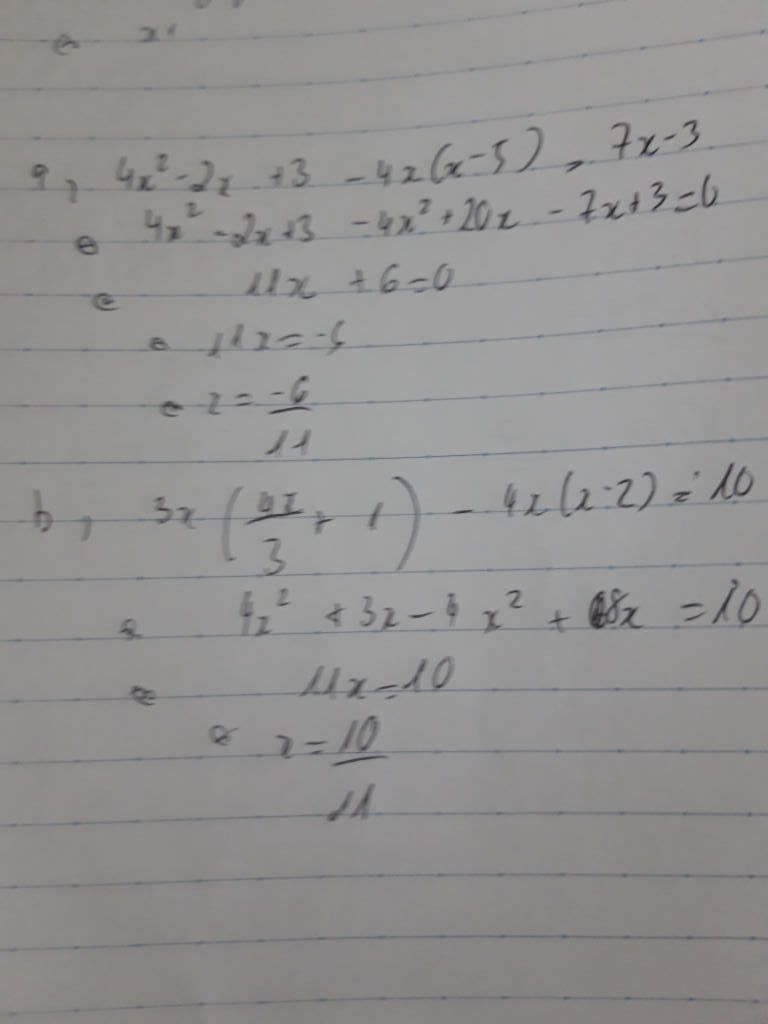 x
a, 4x² - 2x + 3 - 4x(x - 5) = 7x - 3
⇔ 4x² - 2x + 3 - 4x² + 20x - 7x + 3 = 0
⇔ 11x + 6 = 0
⇔ 11x = -6
⇔ x = -6/11
b, 3x(4x/3 + 1) - 4x(x - 2) = 10
⇔ 4x² + 3x - 4x² + 8x = 10
⇔ 11x = 10
⇔ x = 10/11